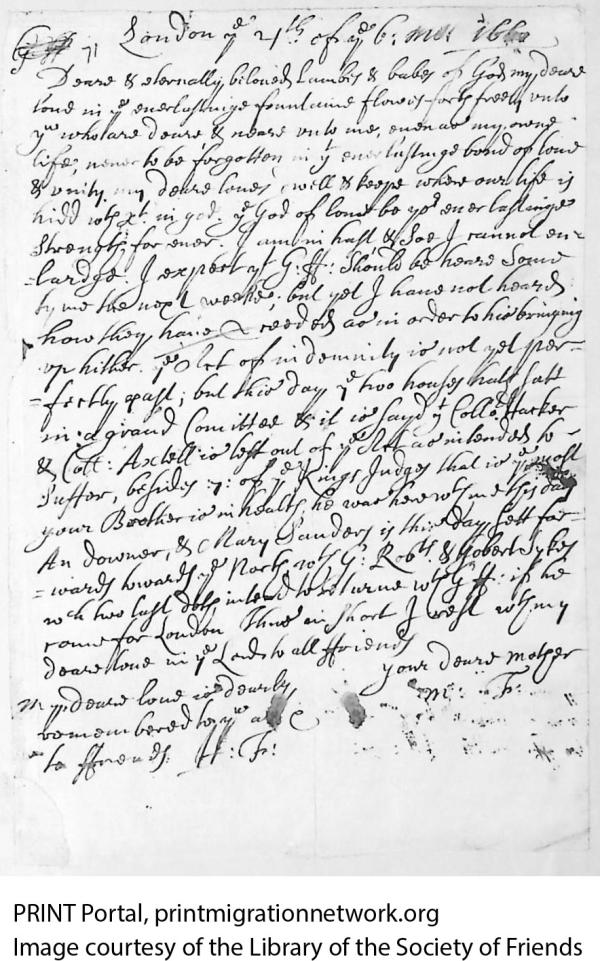 71 London ye 21th of ye 6: mo: 1660
Deare & eternally beloved Lambes & babes of God, my deare
love in ye everlastinge fountaine flowes forth freely unto
yu who are deare & neare unto me, even as my owne
life, never to be forgotten in ye everlastinge bond of love
& unity my deare loves, dwell & keepe where our life is
hidd with xt. in god. ye God of love be yor everlastinge
Strength for ever. I am in hast & Soe I cannot en=
=lardge. I expect yt G: ff: Should be heare Some
tyme the next weeke; but yet I have not heard
how they have as in order to his bringing
up hither. ye Act of indemnity is not yet per=
=fectly past; but this day ye two houses hath satt
in a grand Comittee & it is sayd yt Collo: Hacker
& Coll: Axtell is left out of ye Act as intended to
Suffer, besides 7: of ye Kings Judges that is ye most
your Brother is in health, he was here with me this day
An Downer, & Mary Sanders is this day sett for=
=wards towards ye North with G: Robts. & Robert Sykes
wch two last doth intend to returne with G ff: if he
come for London Thus in short I rest with my
deare love in ye Lord to all ffriends
your deare mother
M: F:
My deare love is dearly
remembered to yu all
to ffriends. ff: F:
PRINT Portal, printmigrationnetwork.org
Image courtesy of the Library of the Society of Friends